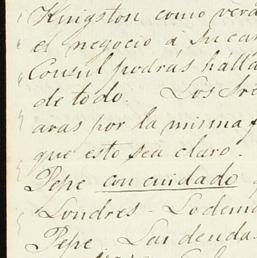 Kingston como verá
el negocio á su car
Consul podras hálla
de todo. Los Sre
aras por la misma f
que esto sea claro.
Pepe con cuidado
Londres - Lo dema
Pepe. Las deuda